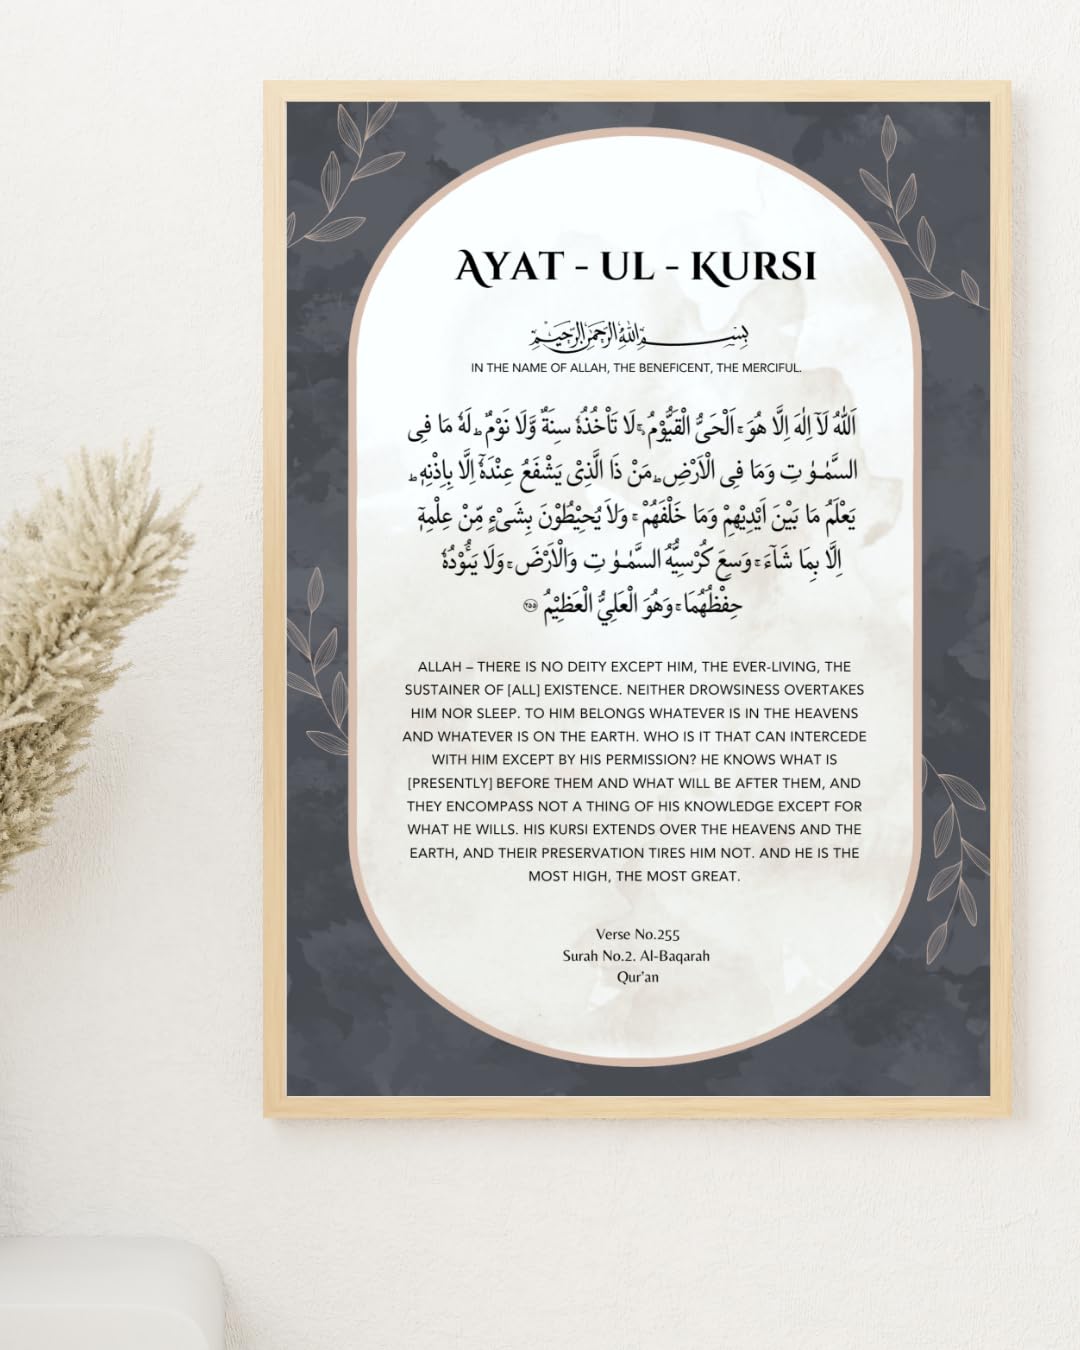 AYAT - UL - KURSI
بِسْمِ اللهِ الرَّحْمٰنِ الرَّحِيْمِ
IN THE NAME OF ALLAH, THE BENEFICENT, THE MERCIFUL.
اَللّٰهُ لَآ اِلٰهَ اِلَّا هُوَ ۚ اَلْحَىُّ الْقَيُّوْمُ ۚ لَا تَاْخُذُهٗ سِنَةٌ وَّلَا نَوْمٌ ؕ لَهٗ مَا فِى
السَّمٰوٰ تِ وَمَا فِى الْاَرْضِ ؕ مَنْ ذَا الَّذِىْ يَشْفَعُ عِنْدَهٗۤ اِلَّا بِاِذْنِهٖ ؕ
يَعْلَمُ مَا بَيْنَ اَيْدِيْهِمْ وَمَا خَلْفَهُمْ ۚ وَلَا يُحِيْطُوْنَ بِشَىْءٍ مِّنْ عِلْمِهٖۤ
اِلَّا بِمَا شَآءَ ۚ وَسِعَ كُرْسِيُّهُ السَّمٰوٰ تِ وَالْاَرْضَ ۚ وَلَا يَـــُٔوْدُهٗ
حِفْظُهُمَا ۚ وَهُوَ الْعَلِىُّ الْعَظِيْمُ ﴿۲۵۵﴾
ALLAH – THERE IS NO DEITY EXCEPT HIM, THE EVER-LIVING, THE
SUSTAINER OF [ALL] EXISTENCE. NEITHER DROWSINESS OVERTAKES
HIM NOR SLEEP. TO HIM BELONGS WHATEVER IS IN THE HEAVENS
AND WHATEVER IS ON THE EARTH. WHO IS IT THAT CAN INTERCEDE
WITH HIM EXCEPT BY HIS PERMISSION? HE KNOWS WHAT IS
[PRESENTLY] BEFORE THEM AND WHAT WILL BE AFTER THEM, AND
THEY ENCOMPASS NOT A THING OF HIS KNOWLEDGE EXCEPT FOR
WHAT HE WILLS. HIS KURSI EXTENDS OVER THE HEAVENS AND THE
EARTH, AND THEIR PRESERVATION TIRES HIM NOT. AND HE IS THE
MOST HIGH, THE MOST GREAT.
Verse No.255
Surah No.2. Al-Baqarah
Qur'an